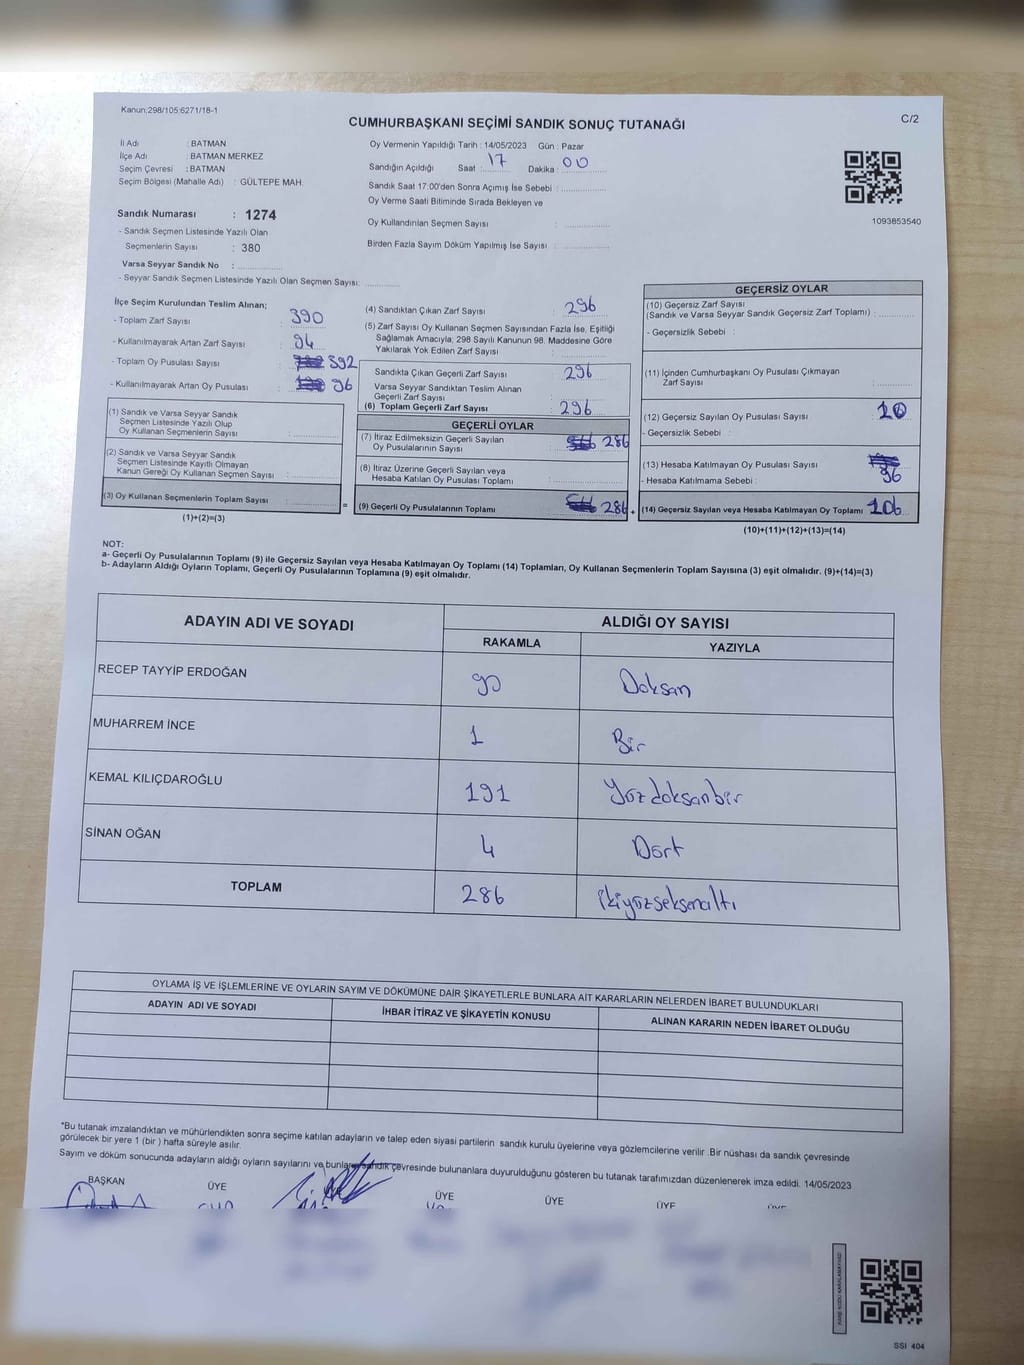 Kanun;298/105:6271/18-1
CUMHURBAŞKANI SEÇİMİ SANDIK SONUÇ TUTANAĞI
C/2
İl Adı : BATMAN
İlçe Adı : BATMAN MERKEZ
Seçim Çevresi : BATMAN
Seçim Bölgesi (Mahalle Adı) : GÜLTEPE MAH.
Sandık Numarası : 1274
- Sandık Seçmen Listesinde Yazılı Olan
Seçmenlerin Sayısı : 380
Varsa Seyyar Sandık No :
- Seyyar Sandık Seçmen Listesinde Yazılı Olan Seçmen Sayısı:
Oy Vermenin Yapıldığı Tarih : 14/05/2023 Gün : Pazar
Sandığın Açıldığı Saat : 17 Dakika : 00
Sandık Saat 17.00'den Sonra Açımış İse Sebebi :
Oy Verme Saati Bitiminde Sırada Bekleyen ve
Oy Kullandırılan Seçmen Sayısı :
Birden Fazla Sayım Döküm Yapılmış İse Sayısı :
1093853540
İlçe Seçim Kurulundan Teslim Alınan;
- Toplam Zarf Sayısı : 390
- Kullanılmayarak Artan Zarf Sayısı : 94
- Toplam Oy Pusulası Sayısı : 392
- Kullanılmayarak Artan Oy Pusulası : 96
(1) Sandık ve Varsa Seyyar Sandık
Seçmen Listesinde Yazılı Olup
Oy Kullanan Seçmenlerin Sayısı :
(2) Sandık ve Varsa Seyyar Sandık
Seçmen Listesinde Kayıtlı Olmayan
Kanun Gereği Oy Kullanan Seçmen Sayısı :
(3) Oy Kullanan Seçmenlerin Toplam Sayısı : =
(1)+(2)=(3)
(4) Sandıktan Çıkan Zarf Sayısı : 296
(5) Zarf Sayısı Oy Kullanan Seçmen Sayısından Fazla İse, Eşitliği
Sağlamak Amacıyla; 298 Sayılı Kanunun 98. Maddesine Göre
Yakılarak Yok Edilen Zarf Sayısı :
Sandıkta Çıkan Geçerli Zarf Sayısı : 296
Varsa Seyyar Sandıktan Teslim Alınan
Geçerli Zarf Sayısı :
(6) Toplam Geçerli Zarf Sayısı : 296
GEÇERLİ OYLAR
(7) İtiraz Edilmeksizin Geçerli Sayılan
Oy Pusulalarının Sayısı : 286
(8) İtiraz Üzerine Geçerli Sayılan veya
Hesaba Katılan Oy Pusulası Toplamı :
(9) Geçerli Oy Pusulalarının Toplamı : 286 +
GEÇERSİZ OYLAR
(10) Geçersiz Zarf Sayısı
(Sandık ve Varsa Seyyar Sandık Geçersiz Zarf Toplamı) :
- Geçersizlik Sebebi :
(11) İçinden Cumhurbaşkanı Oy Pusulası Çıkmayan
Zarf Sayısı :
(12) Geçersiz Sayılan Oy Pusulası Sayısı : 10
- Geçersizlik Sebebi :
(13) Hesaba Katılmayan Oy Pusulası Sayısı : 96
- Hesaba Katılmama Sebebi :
(14) Geçersiz Sayılan veya Hesaba Katılmayan Oy Toplamı : 106
(10)+(11)+(12)+(13)=(14)
NOT:
a- Geçerli Oy Pusulalarının Toplamı (9) ile Geçersiz Sayılan veya Hesaba Katılmayan Oy Toplamı (14) Toplamları, Oy Kullanan Seçmenlerin Toplam Sayısına (3) eşit olmalıdır. (9)+(14)=(3)
b- Adayların Aldığı Oyların Toplamı, Geçerli Oy Pusulalarının Toplamına (9) eşit olmalıdır.
ADAYIN ADI VE SOYADI
ALDIĞI OY SAYISI
RAKAMLA YAZIYLA
RECEP TAYYİP ERDOĞAN 90 Doksan
MUHARREM İNCE 1 Bir
KEMAL KILIÇDAROĞLU 191 Yüzdoksanbir
SİNAN OĞAN 4 Dört
TOPLAM 286 ikiyüzseksenaltı
OYLAMA İŞ VE İŞLEMLERİNE VE OYLARIN SAYIM VE DÖKÜMÜNE DAİR ŞİKAYETLERLE BUNLARA AİT KARARLARIN NELERDEN İBARET BULUNDUKLARI
ADAYIN ADI VE SOYADI İHBAR İTİRAZ VE ŞİKAYETİN KONUSU ALINAN KARARIN NEDEN İBARET OLDUĞU
*Bu tutanak imzalandıktan ve mühürlendikten sonra seçime katılan adayların ve talep eden siyasi partilerin sandık kurulu üyelerine veya gözlemcilerine verilir .Bir nüshası da sandık çevresinde
görülecek bir yere 1 (bir ) hafta süreyle asılır.
Sayım ve döküm sonucunda adayların aldığı oyların sayılarını ve bunların sandık çevresinde bulunanlara duyurulduğunu gösteren bu tutanak tarafımızdan düzenlenerek imza edildi. 14/05/2023
BAŞKAN ÜYE ÜYE ÜYE ÜYE
SSI 404